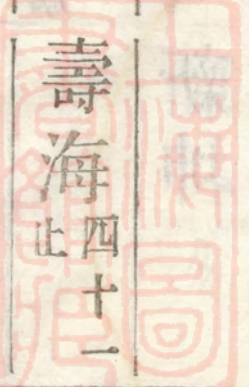 壽海
四十一
止